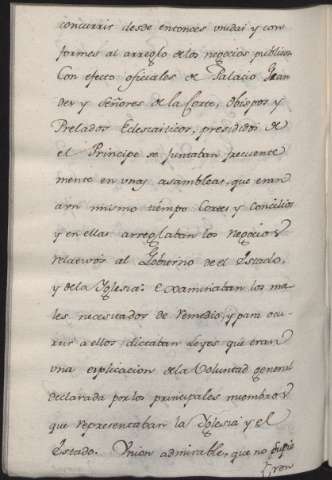 concurrir desde entonces unidas y con
formes al arreglo de los negocios publicos.
Con efecto oficiales de Palacio Gran
des y Señores de la Corte, Obispos y
Prelados Eclesiasticos, presididos de
el Principe se juntaban frecuente
mente en unas asambleas, que eran
a un mismo tiempo Cortes y Concilios
y en ellas arreglaban los negocios
relativos al Govierno de el Estado,
y de la Iglesia: Examinaban los ma
les necesitados de remedio, y para ocu
rrir a ellos, dictaban Leyes que eran
una explicacion de la Voluntad general
declarada por los principales miembros
que representaban la Iglesia y el
Estado. Union admirable, que no supie
ron